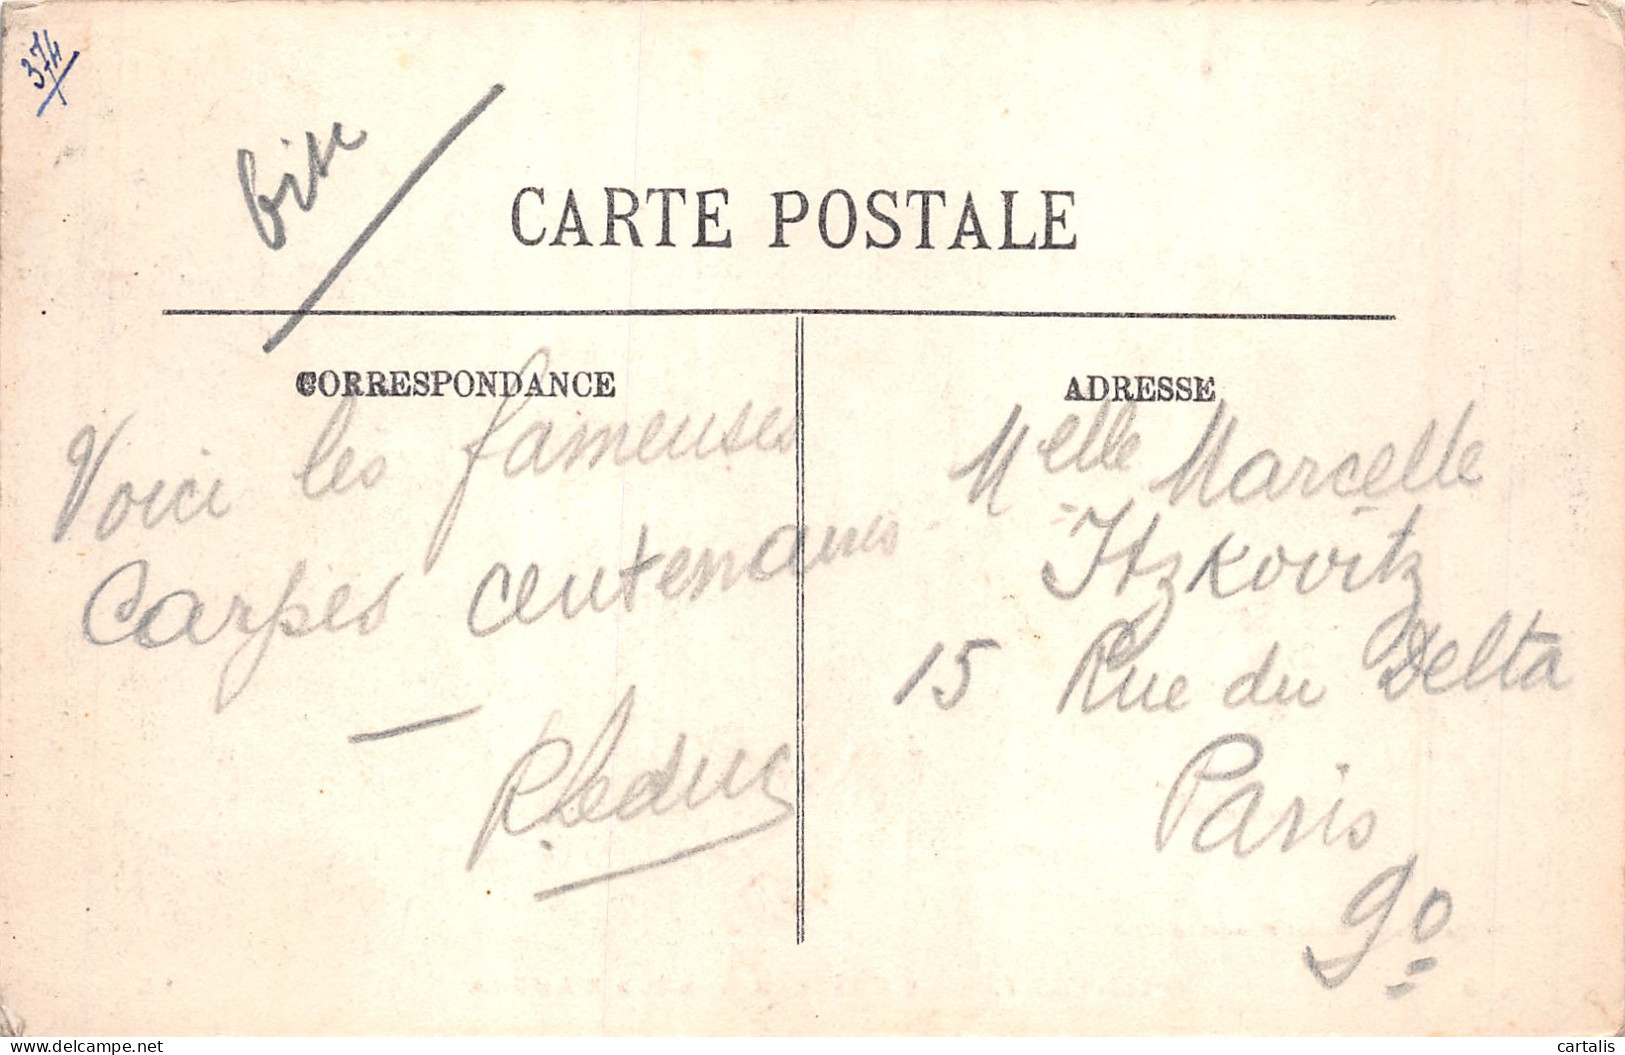 374
CARTE POSTALE
CORRESPONDANCE
Voici les fameuses
Carpes centenaires
—
R. Leduc
ADRESSE
Melle Marcelle
Itzkovitz
15 Rue du Delta
Paris
9º
cartalis